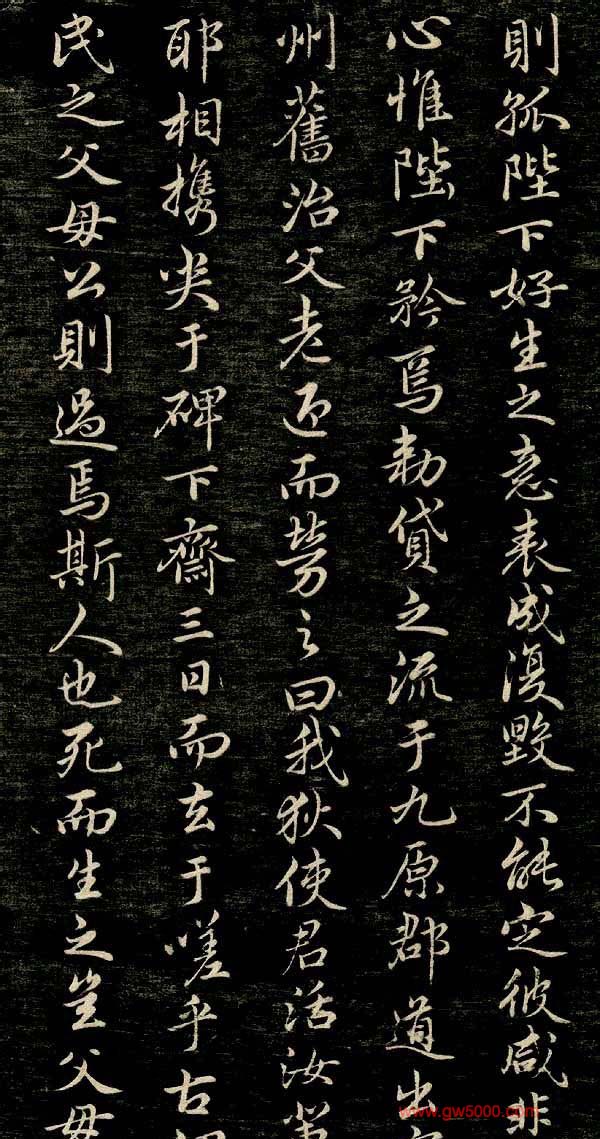 則孤陛下好生之意表成復毀不能定彼咸非
心惟陛下矜焉勅貸之流于九原郡道出
州舊治父老迎而勞之曰我狄使君活汝輩
耶相携哭于碑下齋三日而去于嗟乎古
民之父母公則過焉斯人也死而生之豈父母
www.gw5000.com